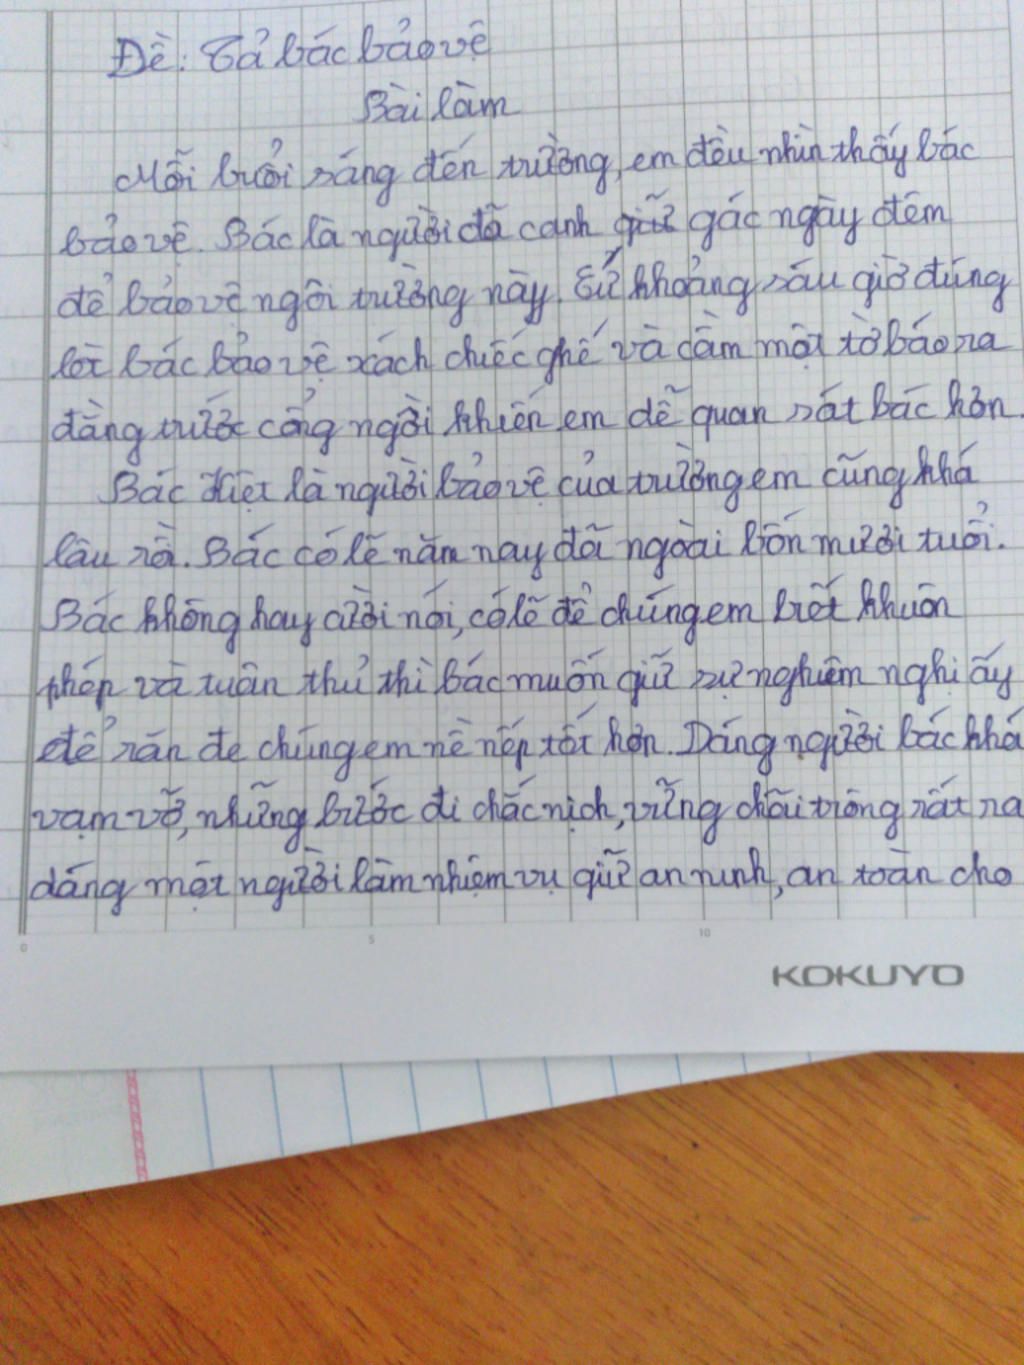 Đề: Tả bác bảo vệ
Bài làm
Mỗi buổi sáng đến trường, em đều nhìn thấy bác
bảo vệ. Bác là người đã canh giữ gác ngày đêm
để bảo vệ ngôi trường này. Cứ khoảng sáu giờ đúng
lời bác bảo vệ xách chiếc ghế và cầm một tờ báo ra
đằng trước cổng ngồi khiến em dễ quan sát bác hơn.
Bác Việt là người bảo vệ của trường em cũng khá
lâu rồi. Bác có lẽ năm nay đã ngoài bốn mươi tuổi.
Bác không hay cười nói, có lẽ để chúng em biết khuôn
phép và tuân thủ thì bác muốn giữ sự nghiêm nghị ấy
để răn đe chúng em nề nếp tốt hơn. Dáng người bác khá
vạm vỡ, những bước đi chắc nịch, vững chãi trông rất ra
dáng một người làm nhiệm vụ giữ an ninh, an toàn cho
0 5 10
KOKUYO